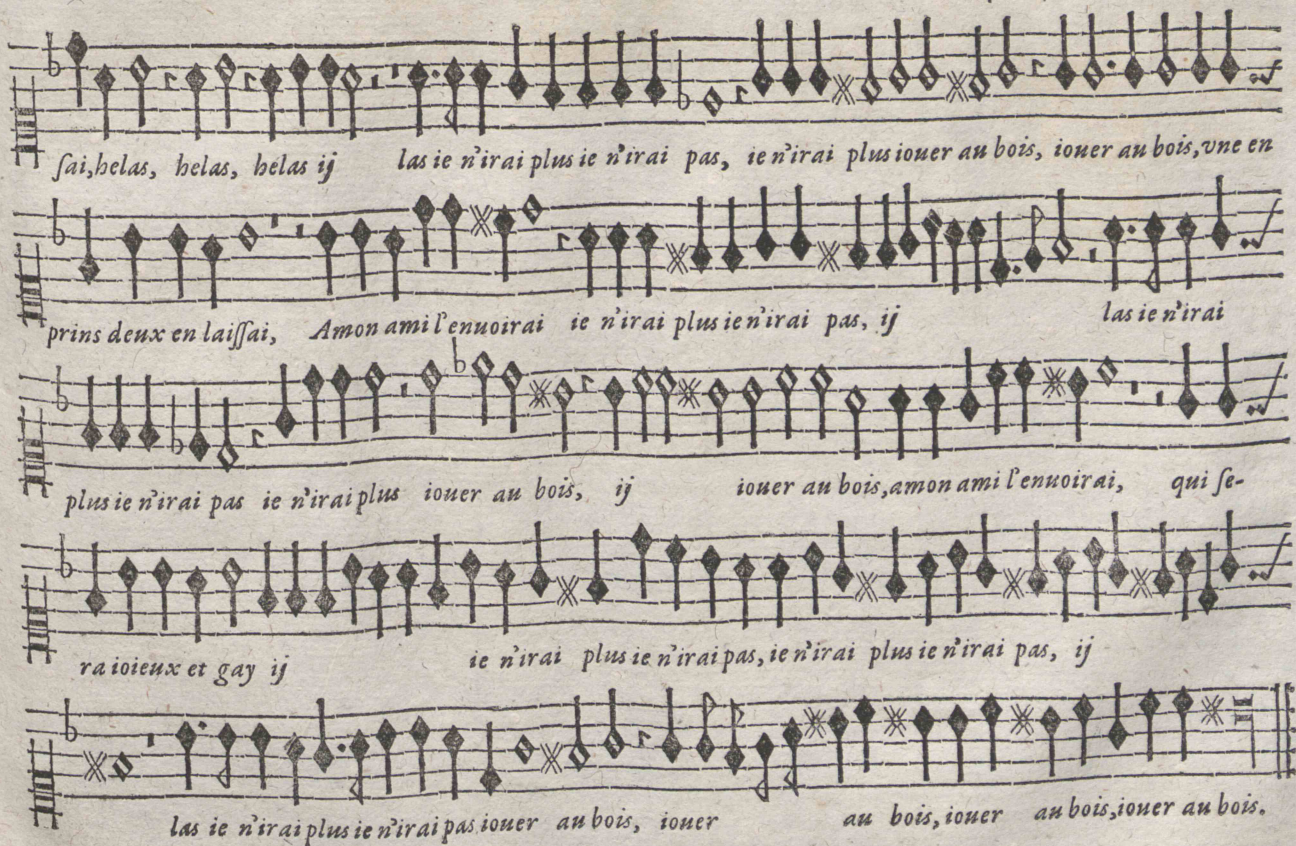 ſai,helas, helas, helas ij las ie n'irai plus ie n'irai pas, ie n'irai plus iouer au bois, iouer au bois,vne en
prins deux en laiſſai, Amon ami l'enuoirai ie n'irai plus ie n'irai pas, ij las ie n'irai
plus ie n'irai pas ie n'irai plus iouer au bois, ij iouer au bois,amon ami l'enuoirai, qui ſe-
ra ioieux et gay ij ie n'irai plus ie n'irai pas, ie n'irai plus ie n'irai pas, ij
las ie n'irai plus ie n'irai pas iouer au bois, iouer au bois, iouer au bois,iouer au bois.